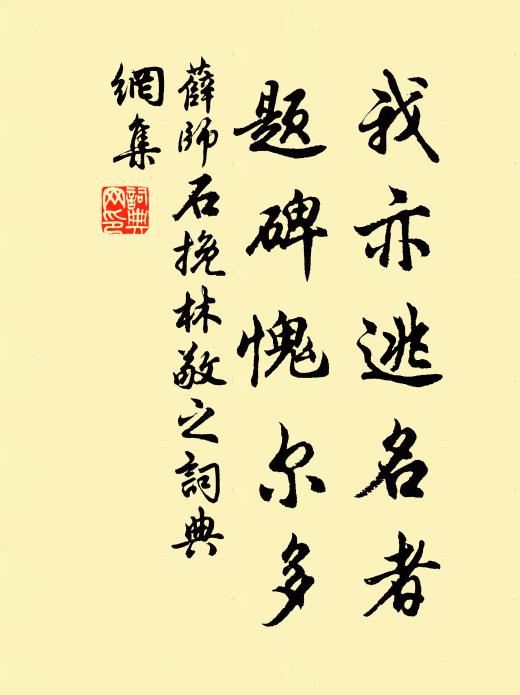 我亦逃名者
題碑愧尔多
薛師石挽林敬之詞典
網集
詞典
网印